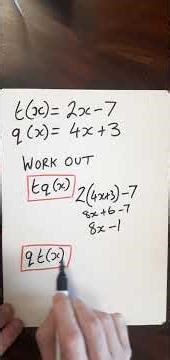 t(x) = 2x-7
q(x) = 4x+3
WORK OUT
tq(x) 2(4x+3)-7
8x+6-7
8x-1
qt(x)